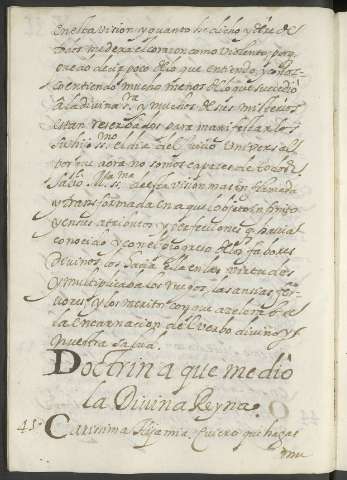 en esta vision, y quanto he dicho y dire de
todo me dexa el coraçon como violento, por
que
entiendo mucho menos de lo que sucedió
a la divina Sra y muchos de sus misterios
estan reservados para manifestarlos
su hijo ssmo el dia del juicio universal
por que aora no somos capaces de todos.
Salio M. ssma de esta vision mas inflamada
y transformada en aquel objeto infinito
y en sus atributos y perfecciones que avia
conocido y con el progreso de los fabores
divinos los hacia ella en las virtudes
y multiplicaba los ruegos, las ansias, fer-
vores y los meritos con que aceleraba
la Encarnacion del Verbo divino y
nuestra salud.
Doctrina que me dio
la Divina Reyna.
45. Carissima Hija mia, quiero que hagas
mu